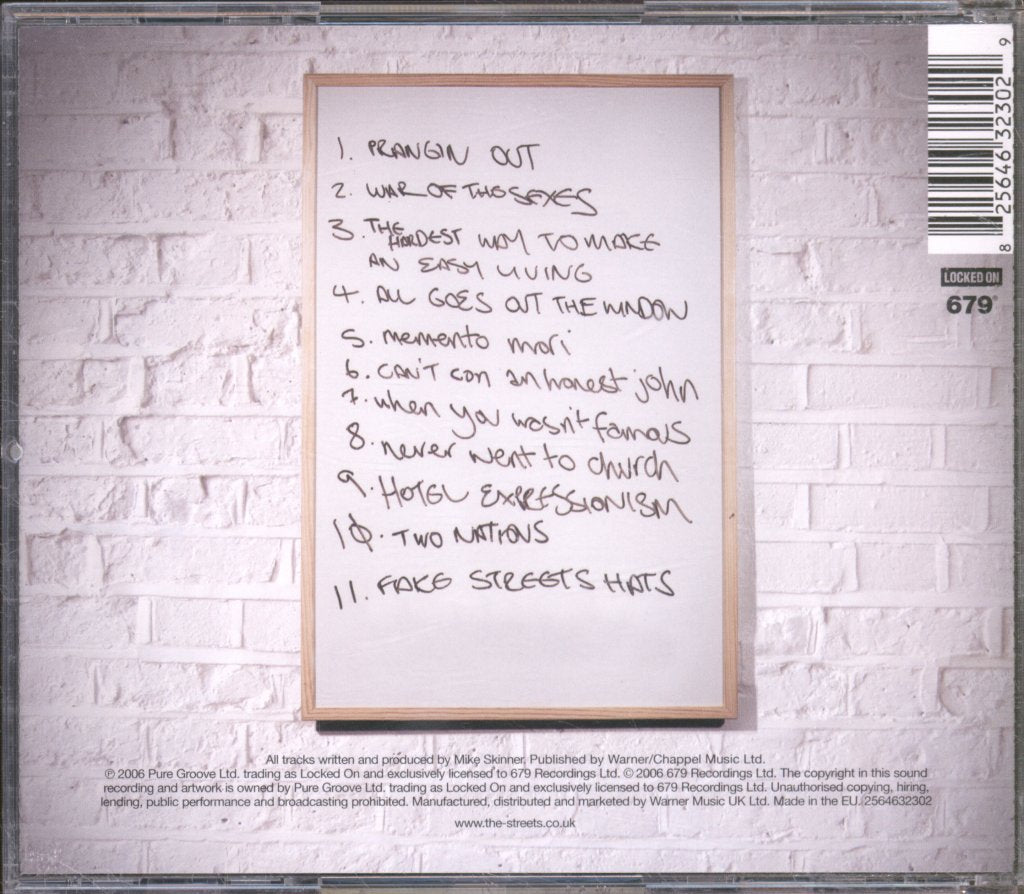 1. PRANGIN OUT
2. WAR OF THE SEXES
3. THE HARDEST WAY TO MAKE
AN EASY LIVING
4. ALL GOES OUT THE WINDOW
5. memento mori
6. CAN'T con an honest john
7. when you wasn't famous
8. never went to church
9. HOTEL EXPRESSIONISM
10. TWO NATIONS
11. FAKE STREETS HATS
8 25646 32302 9
LOCKED ON
679
All tracks written and produced by Mike Skinner. Published by Warner/Chappel Music Ltd.
℗ 2006 Pure Groove Ltd. trading as Locked On and exclusively licensed to 679 Recordings Ltd. © 2006 679 Recordings Ltd. The copyright in this sound
recording and artwork is owned by Pure Groove Ltd. trading as Locked On and exclusively licensed to 679 Recordings Ltd. Unauthorised copying, hiring,
lending, public performance and broadcasting prohibited. Manufactured, distributed and marketed by Warner Music UK Ltd. Made in the EU. 2564632302
www.the-streets.co.uk